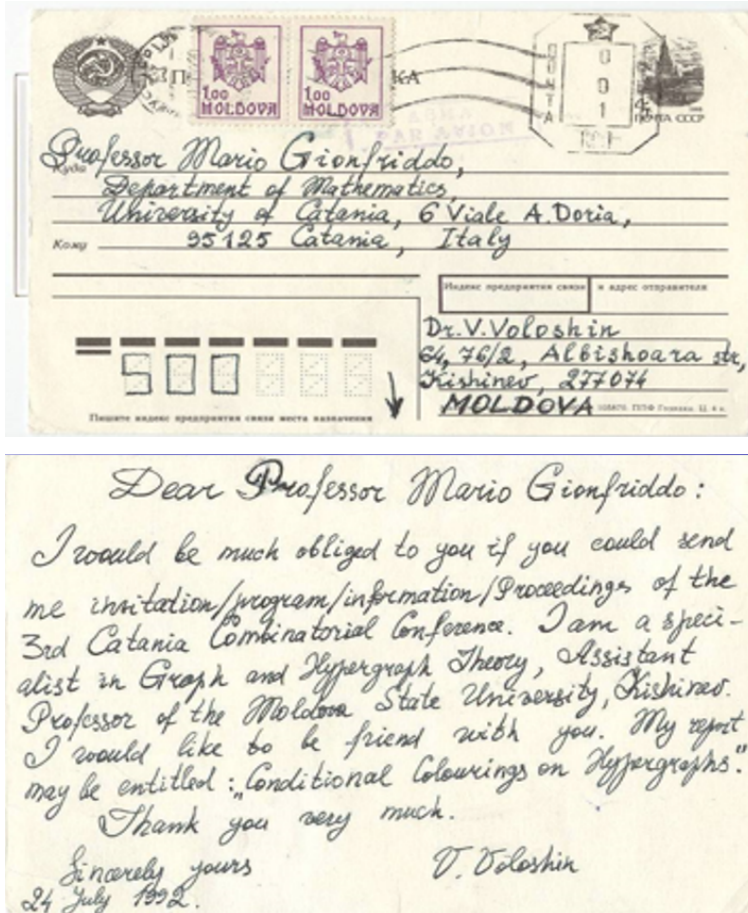 1.00
MOLDOVA
1.00
MOLDOVA
КА
ПОЧТА
0
0
1
4к
ПОЧТА СССР
PAR AVION
Professor Mario Gionfriddo,
Куда
Department of Mathematics,
University of Catania, 6 Viale A.Doria,
95125 Catania, Italy
Кому
Индекс предприятия связи и адрес отправителя
Dr.V.Voloshin
64, 76/2, Albishoara str,
Kishinev, 277074
MOLDOVA
500
Пишите индекс предприятия связи места назначения
Dear Professor Mario Gionfriddo:
I would be much obliged to you if you could send
me invitation/program/information/Proceedings of the
3rd Catania Combinatorial Conference. I am a speci-
alist in Graph and Hypergraph Theory, Assistant
Professor of the Moldova State University, Kishinev.
I would like to be friend with you. My report
may be entitled: „Conditional Colourings on Hypergraphs."
Thank you very much.
Sincerely yours V. Voloshin
24 July 1992.